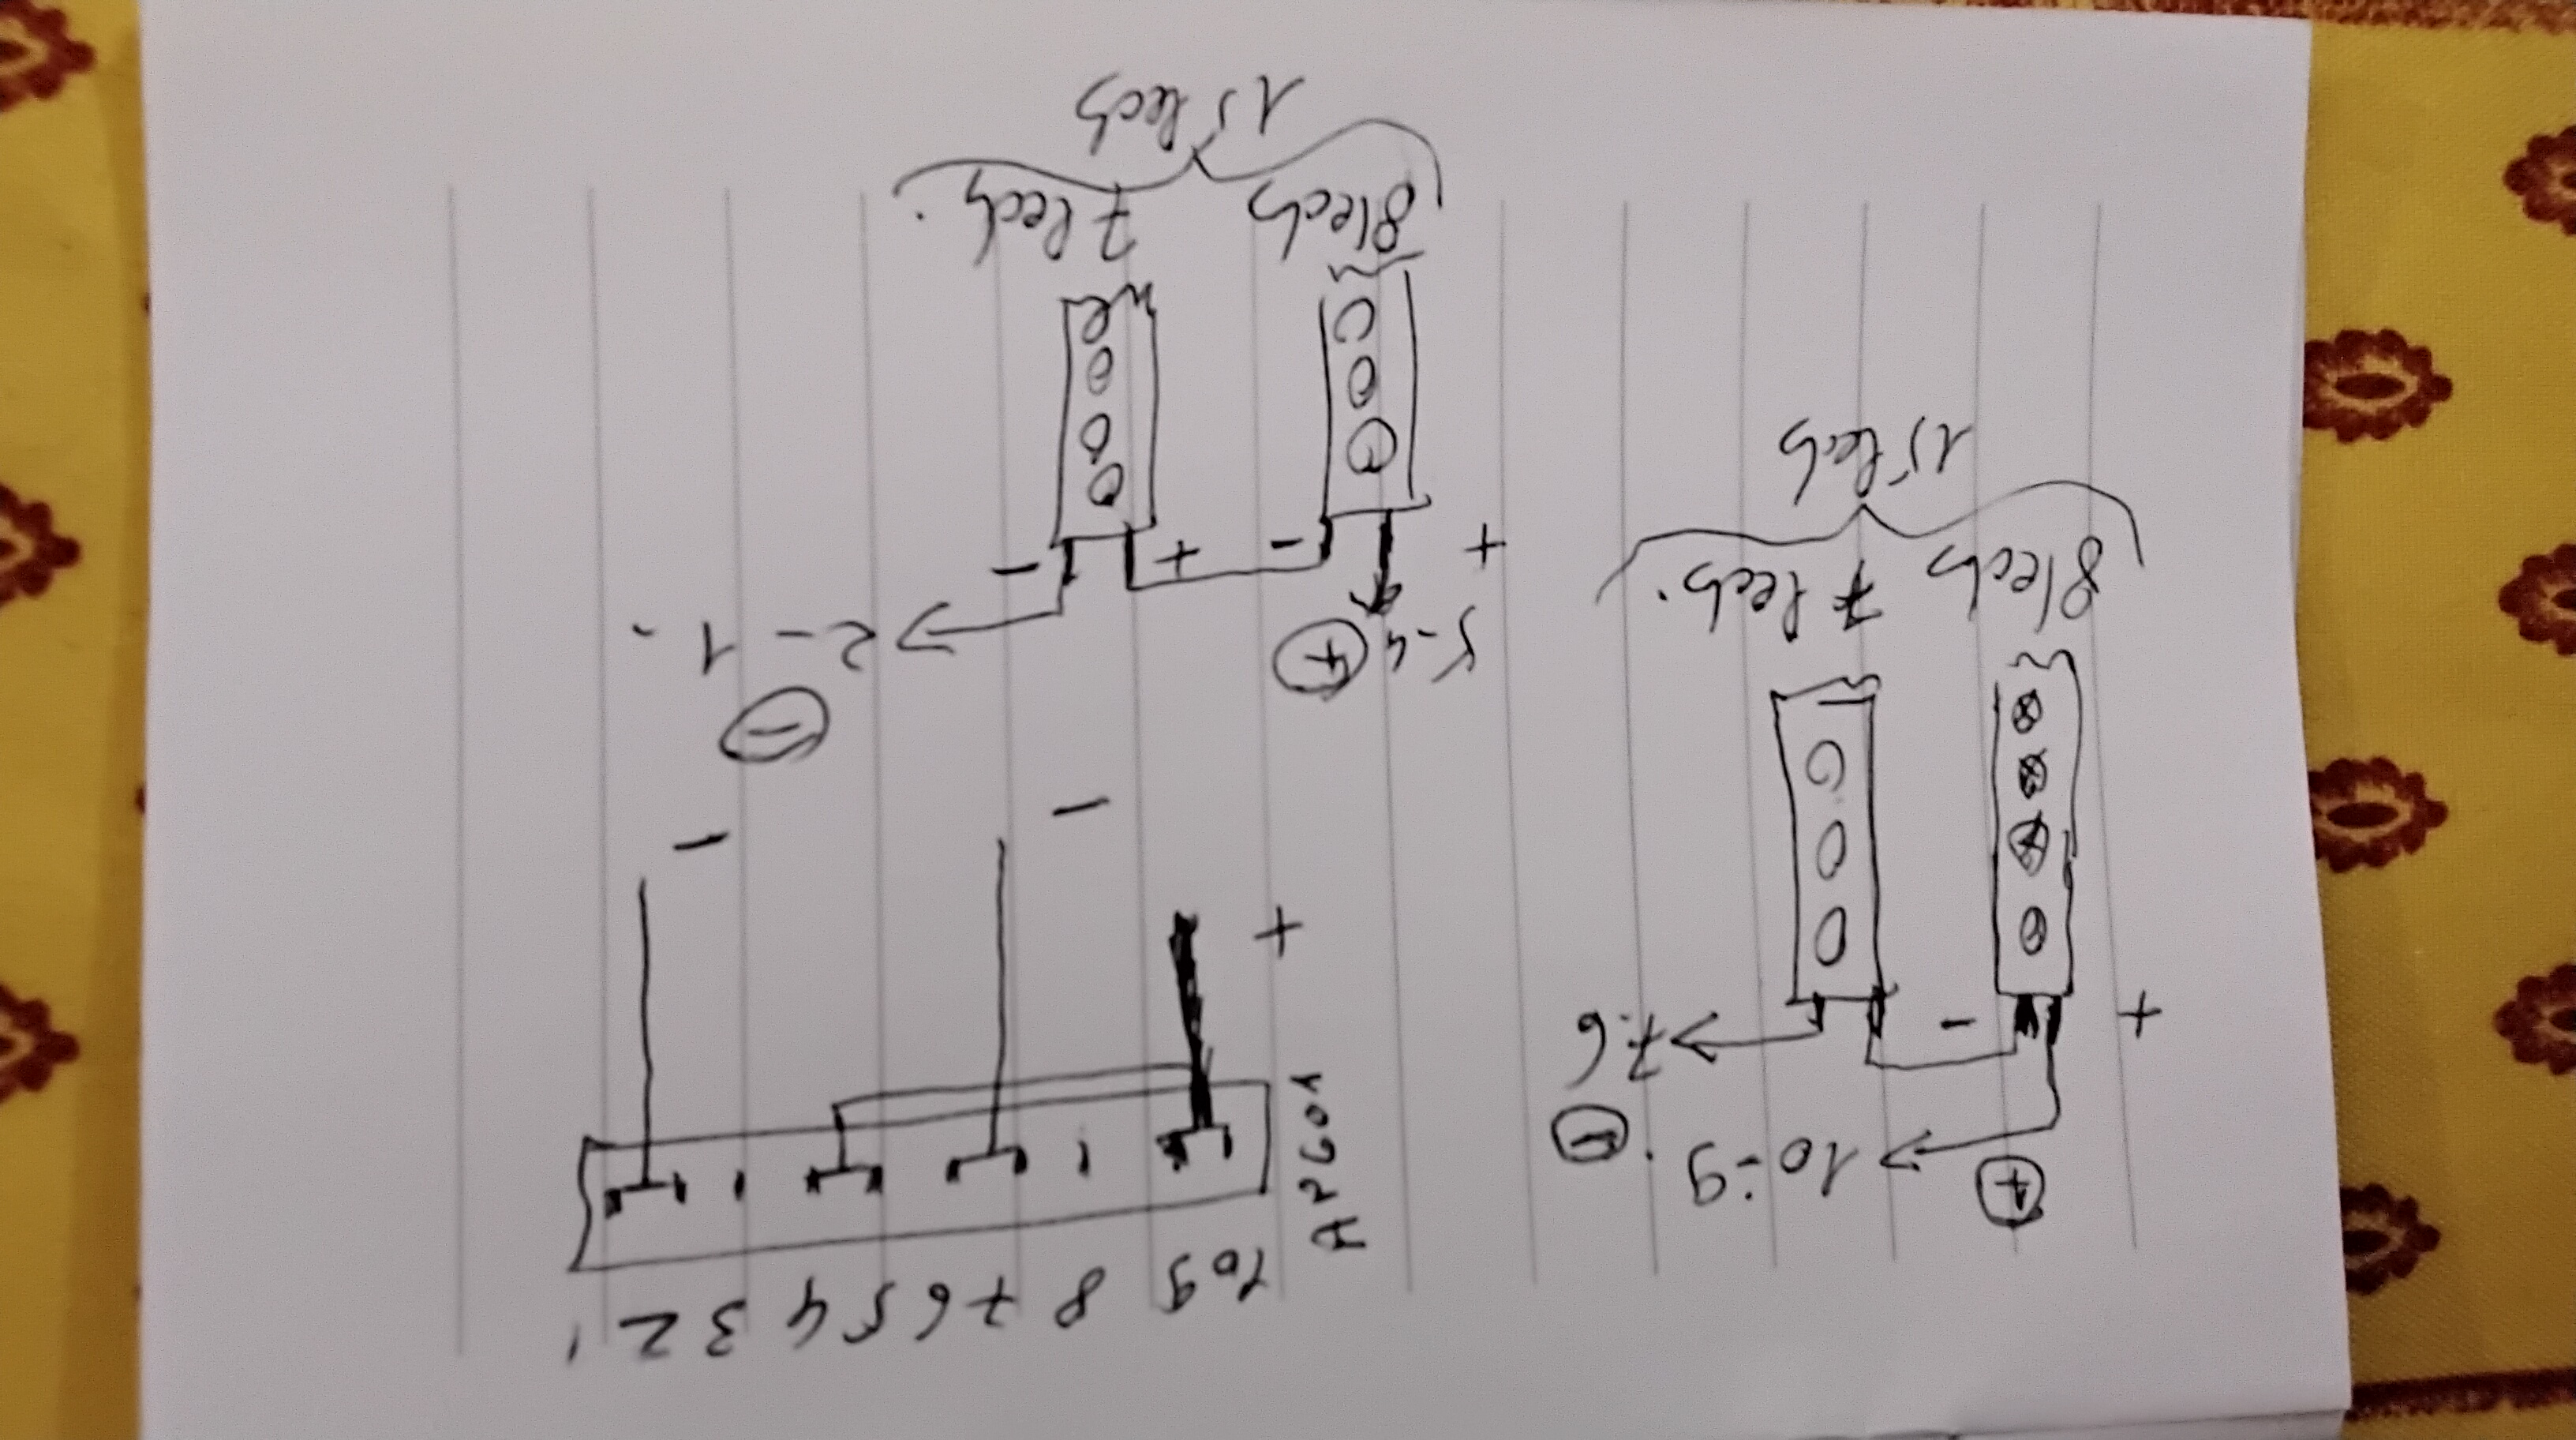 15 leds
7 leds.
8 leds
- + - +
2 - 1 -
5-4
+
-
15 leds
7 leds.
8 leds
- +
7-6
-
10-9.
+
- - +
AP601
1 2 3 4 5 6 7 8 9 10